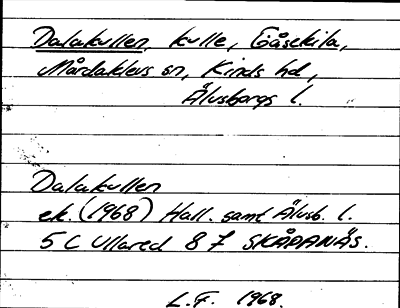 Dalakullen, kulle, Gåsekila,
Mårdaklevs sn, Kinds hd,
Älvsborgs l.
Dalakullen
ek. (1968) Hall. samt Älvsb. l.
5 C Ullared 8 7 SKÅPANÄS.
L.F. 1968.